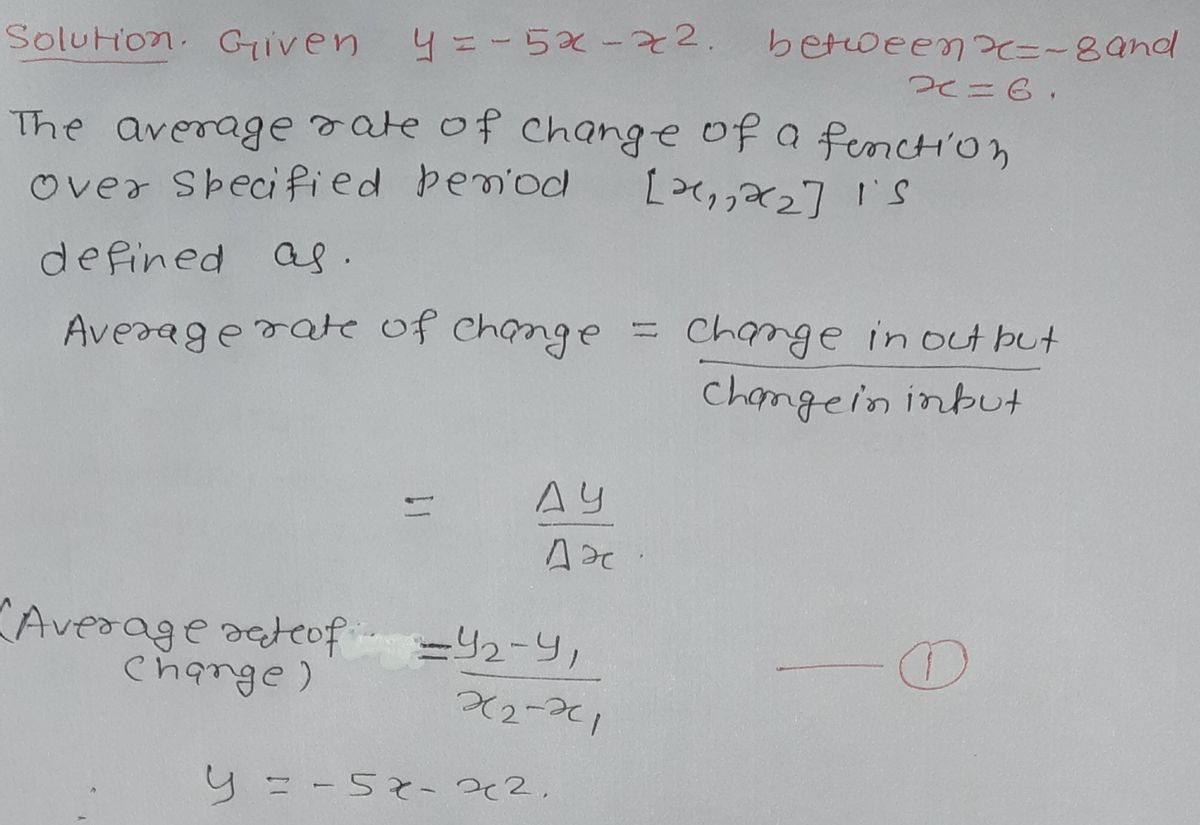 Solution. Given y = -5x - x2. between x=-8 and
x = 6.
The average rate of change of a function
over specified period [x1, x2] is
defined as.
Average rate of change = change in output
change in input
= Δy
Δx.
(Average rate of = y2-y1 — 1
change) x2-x1
y = -5x - x2.